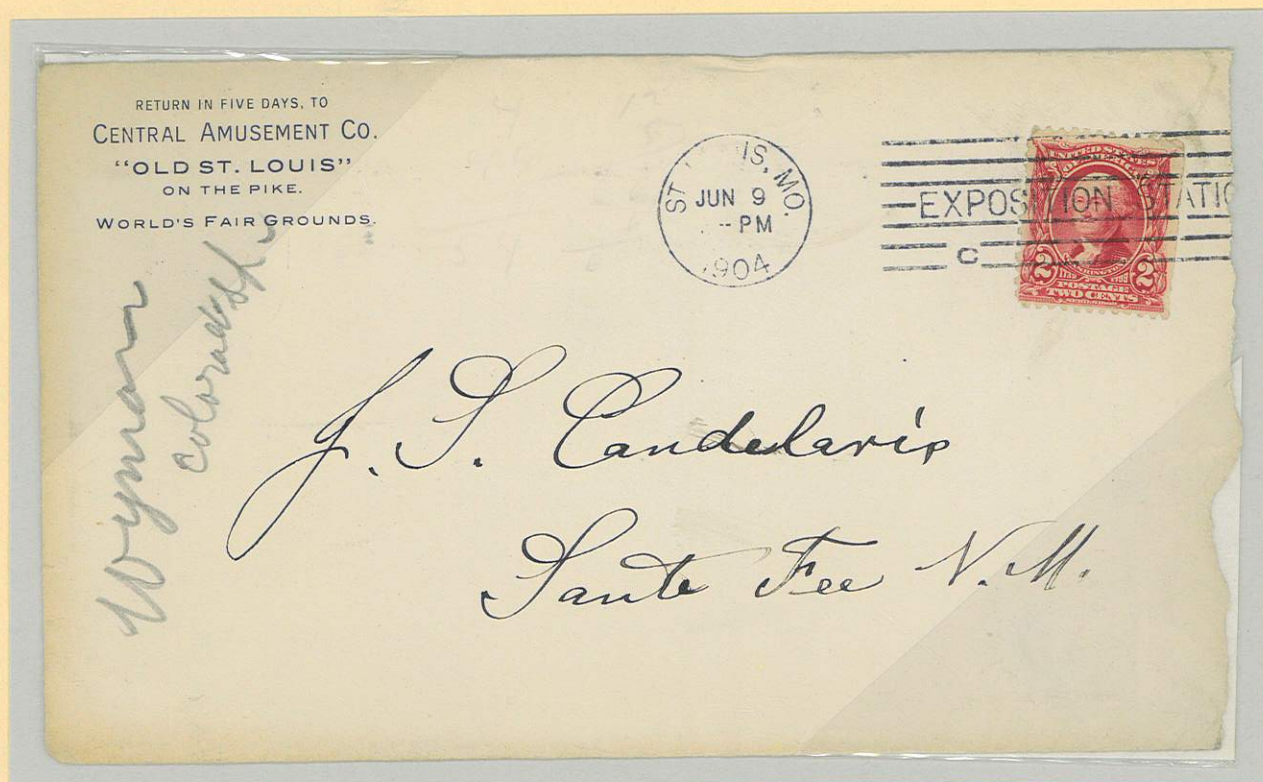 RETURN IN FIVE DAYS, TO
CENTRAL AMUSEMENT CO.
"OLD ST. LOUIS"
ON THE PIKE.
WORLD'S FAIR GROUNDS.
ST IS, MO.
JUN 9
PM
1904
EXPOSITION STATIO
C
UNITED STATES
OF AMERICA
WASHINGTON
2 2
POSTAGE
TWO CENTS
Wyman
Colorado Sp.
J. S. Candelario
Sante Fee N.M.